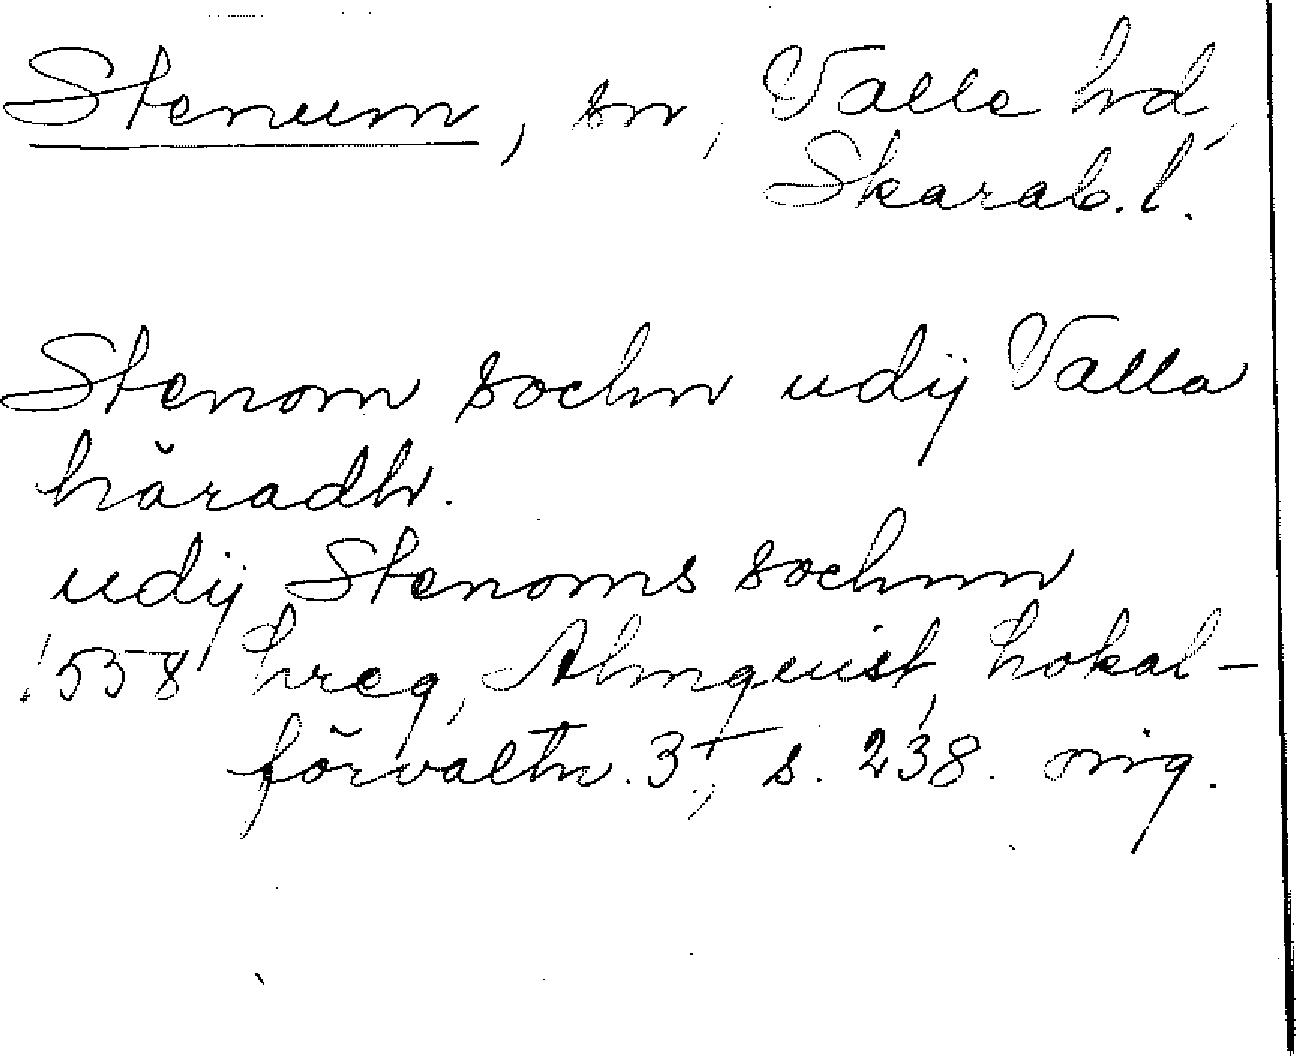 Stenum, sn, Valle hd,
Skarab. l.
Stenom sochn udij Valla
häradh.
udij Stenoms sochnn
1558 hreg, Almquist, Lokal-
förvaltn. 3:, s. 238. orig.